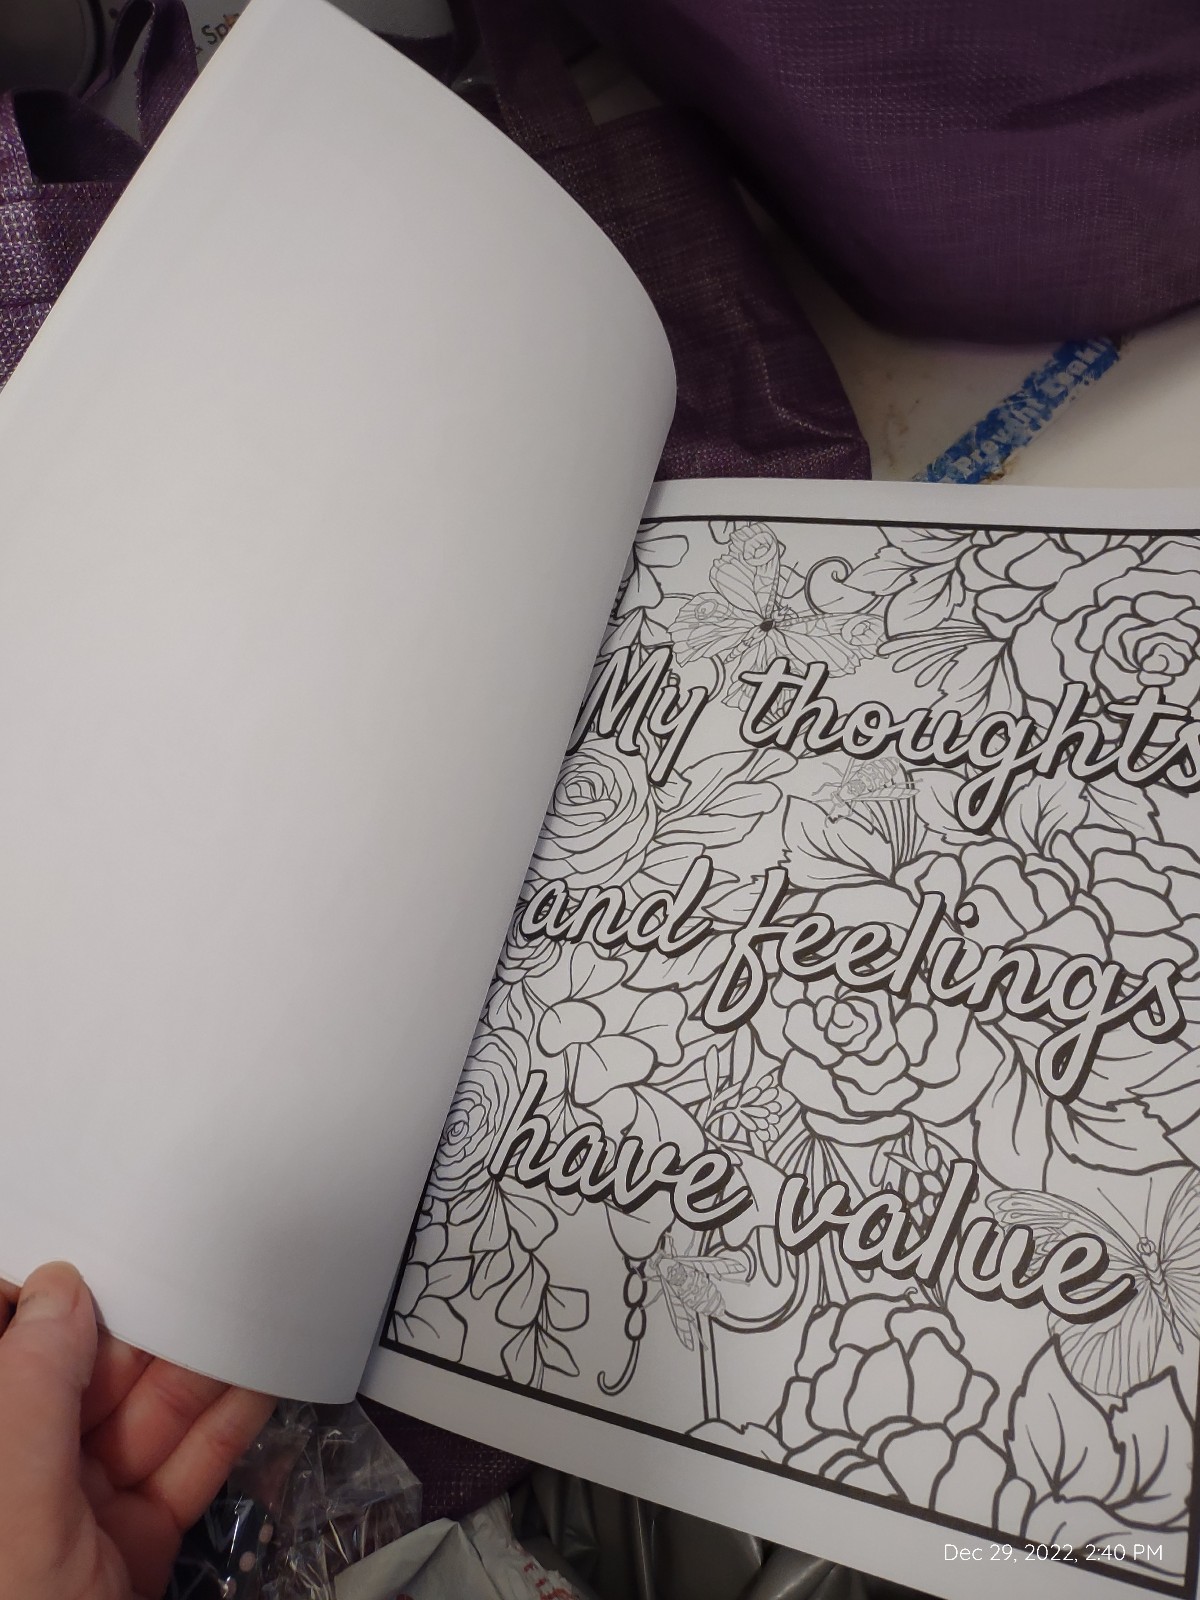 & Sp
Prevent Leaki
My thoughts
and feelings
have value
Dec 29, 2022, 2:40 PM